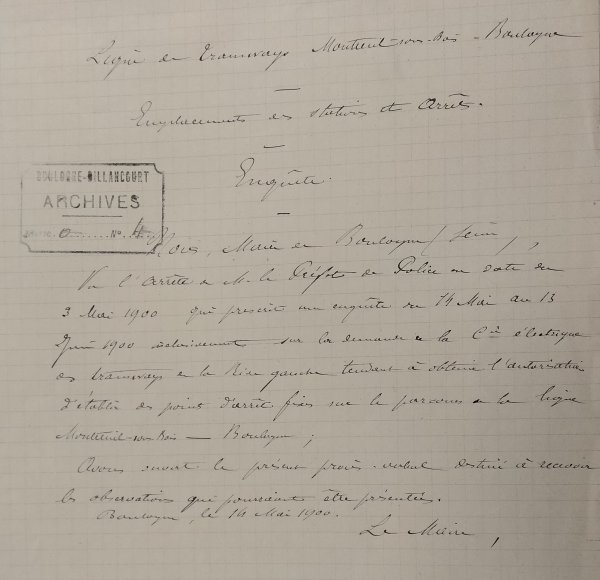 Ligne de tramways Montreuil-sous-Bois - Boulogne
Emplacements des stations et arrêts.
Enquête.
BOULOGNE-BILLANCOURT
ARCHIVES
O N° 4
Nous, Maire de Boulogne (Seine),
Vu l'arrêté de M. le Préfet de Police en date du
3 Mai 1900 qui prescrit une enquête du 14 Mai au 13
Juin 1900 inclusivement sur la demande de la Cie électrique
des tramways de la Rive gauche tendant à obtenir l'autorisation
d'établir des points d'arrêt fixes sur le parcours de la ligne
Montreuil-sous-Bois — Boulogne ;
Avons ouvert le présent procès-verbal destiné à recevoir
les observations qui pourraient être présentées.
Boulogne, le 14 Mai 1900.
Le Maire,